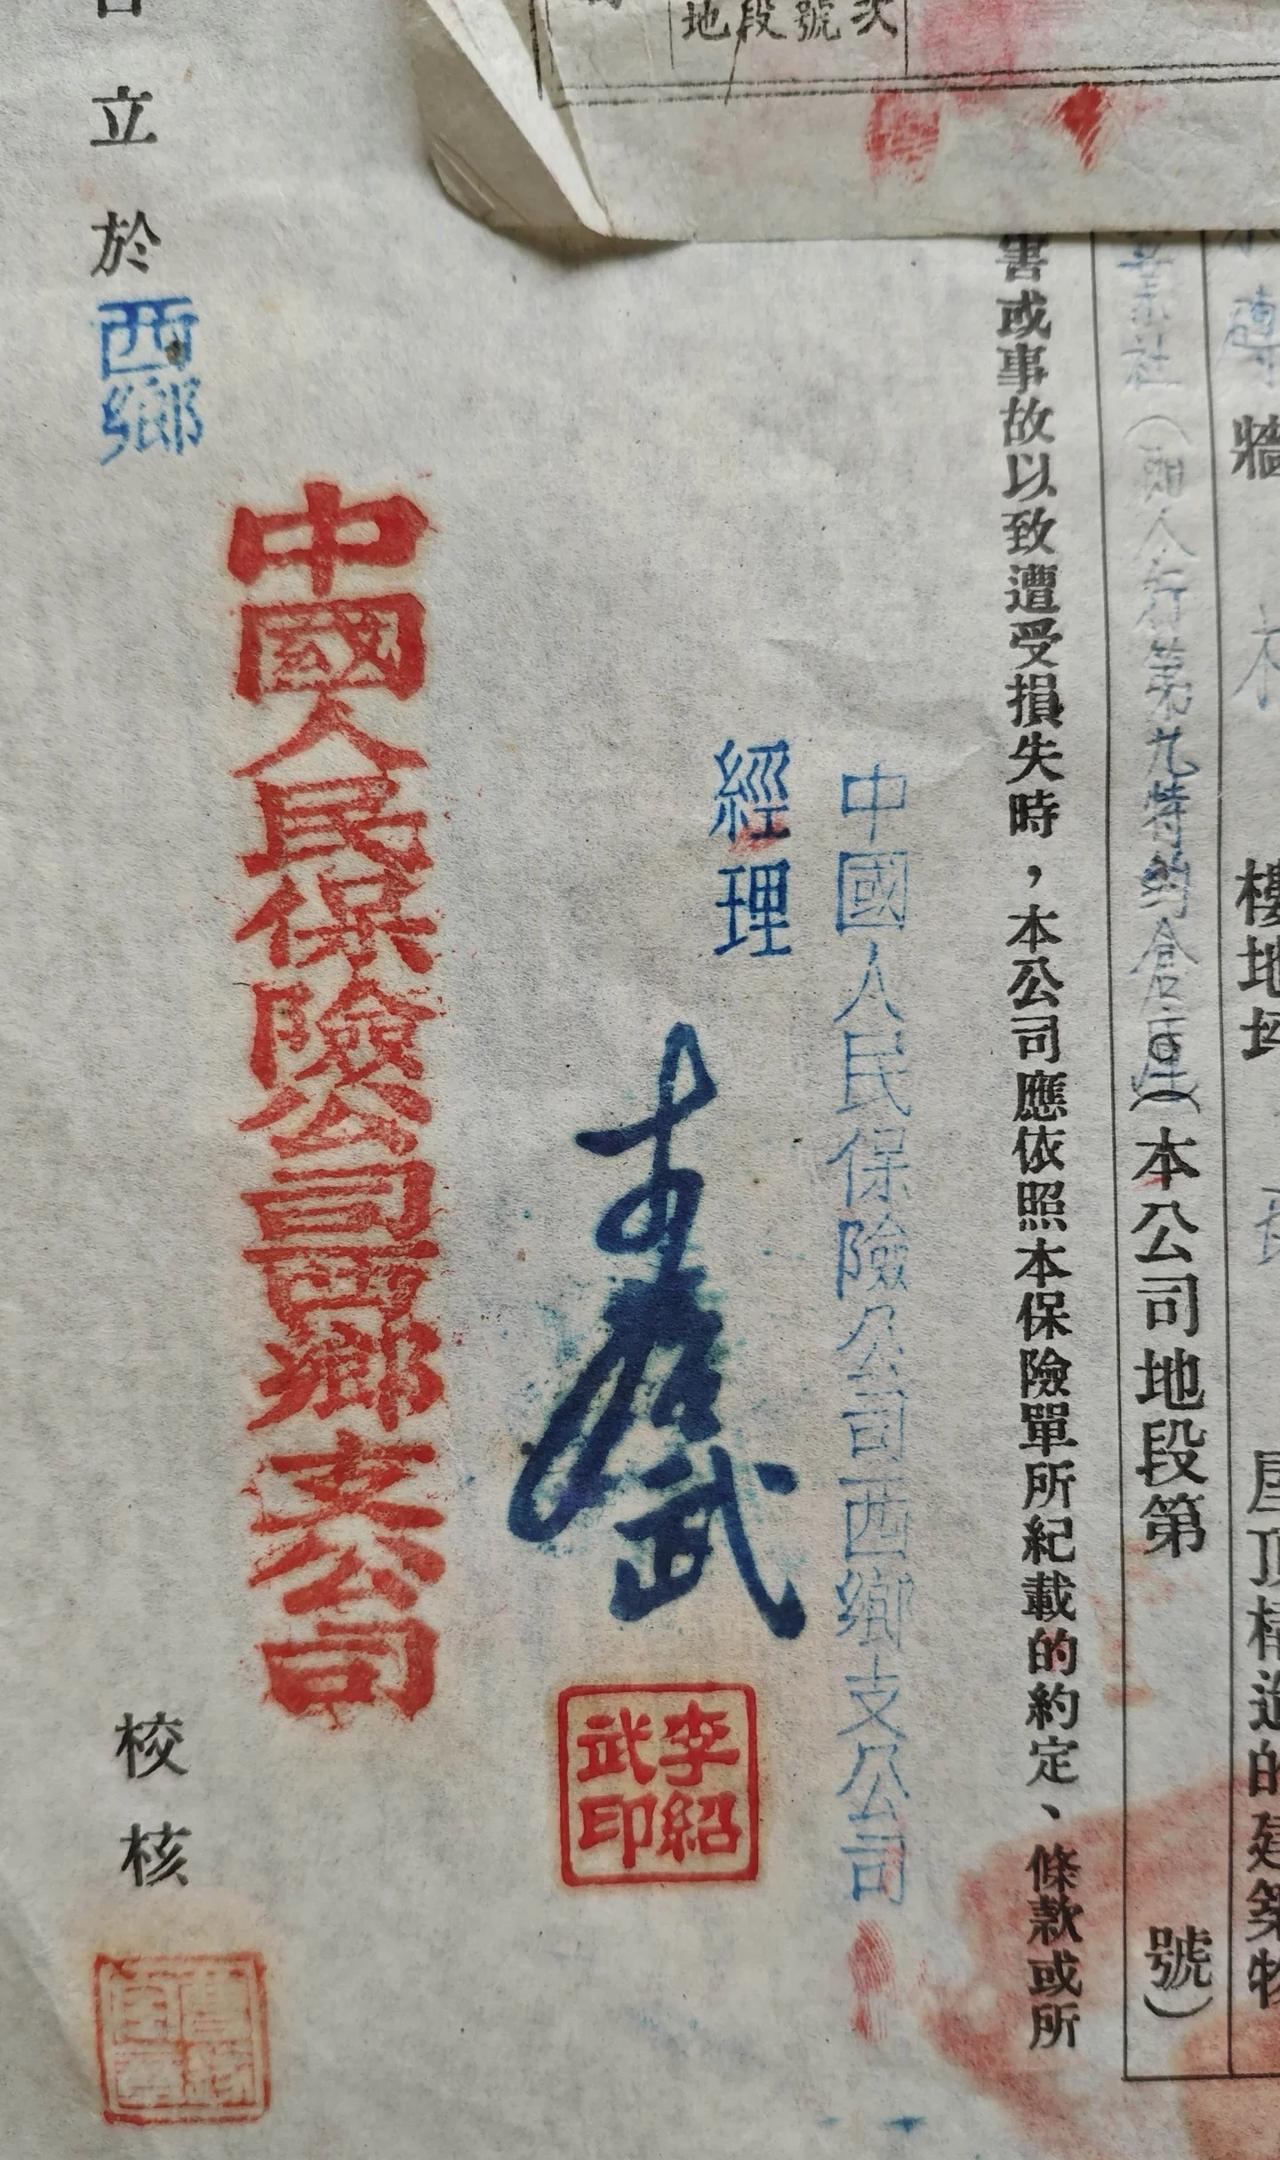 地段號次
牆
樓地
屋頂構造的建築物
社(西人行第九特約倉庫)(本公司地段第 號)
害或事故以致遭受損失時，本公司應依照本保險單所紀載的約定、條款或所
中國人民保險公司西鄉支公司
經理
李紹武
李紹武印
中國人民保險公司西鄉支公司
立於西鄉
校核